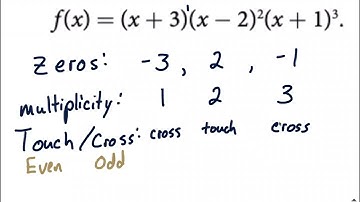 f(x) = (x + 3)¹(x − 2)²(x + 1)³.
Zeros: -3, 2, -1
multiplicity: 1 2 3
Touch/Cross: cross touch cross
Even Odd